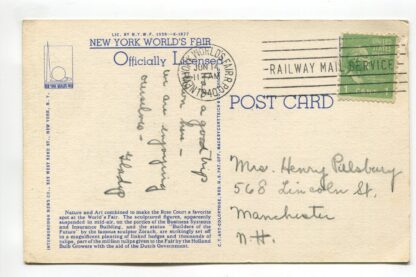 LIC. BY N.Y.W.F. 1939
NEW YORK WORLD'S FAIR
Officially Licensed
NEW YORK WORLD'S FAIR
JUN 14
11 AM
1940
RAILWAY MAIL SERVICE
1
POST CARD
a good trip
we are enjoying
ourselves -
Gladys
Mrs. Henry Palsbury
568 Lincoln St.
Manchester
N.H.
Nature and Art combined to make the Rose Court a favorite
spot at the World's Fair. The sculptured figures, apparently
suspended in mid-air, on the portico of the Business Systems
and Insurance Building, and the status "Builders of the
Future" by the famous sculptor Zorach, are strikingly set off
in a magnificent planting of linked hedges and thousands of
tulips, part of the million tulips given to the Fair by the Holland
Bulb Growers with the aid of the Dutch Government.
INTERBOROUGH NEWS CO., NEW YORK, N. Y.